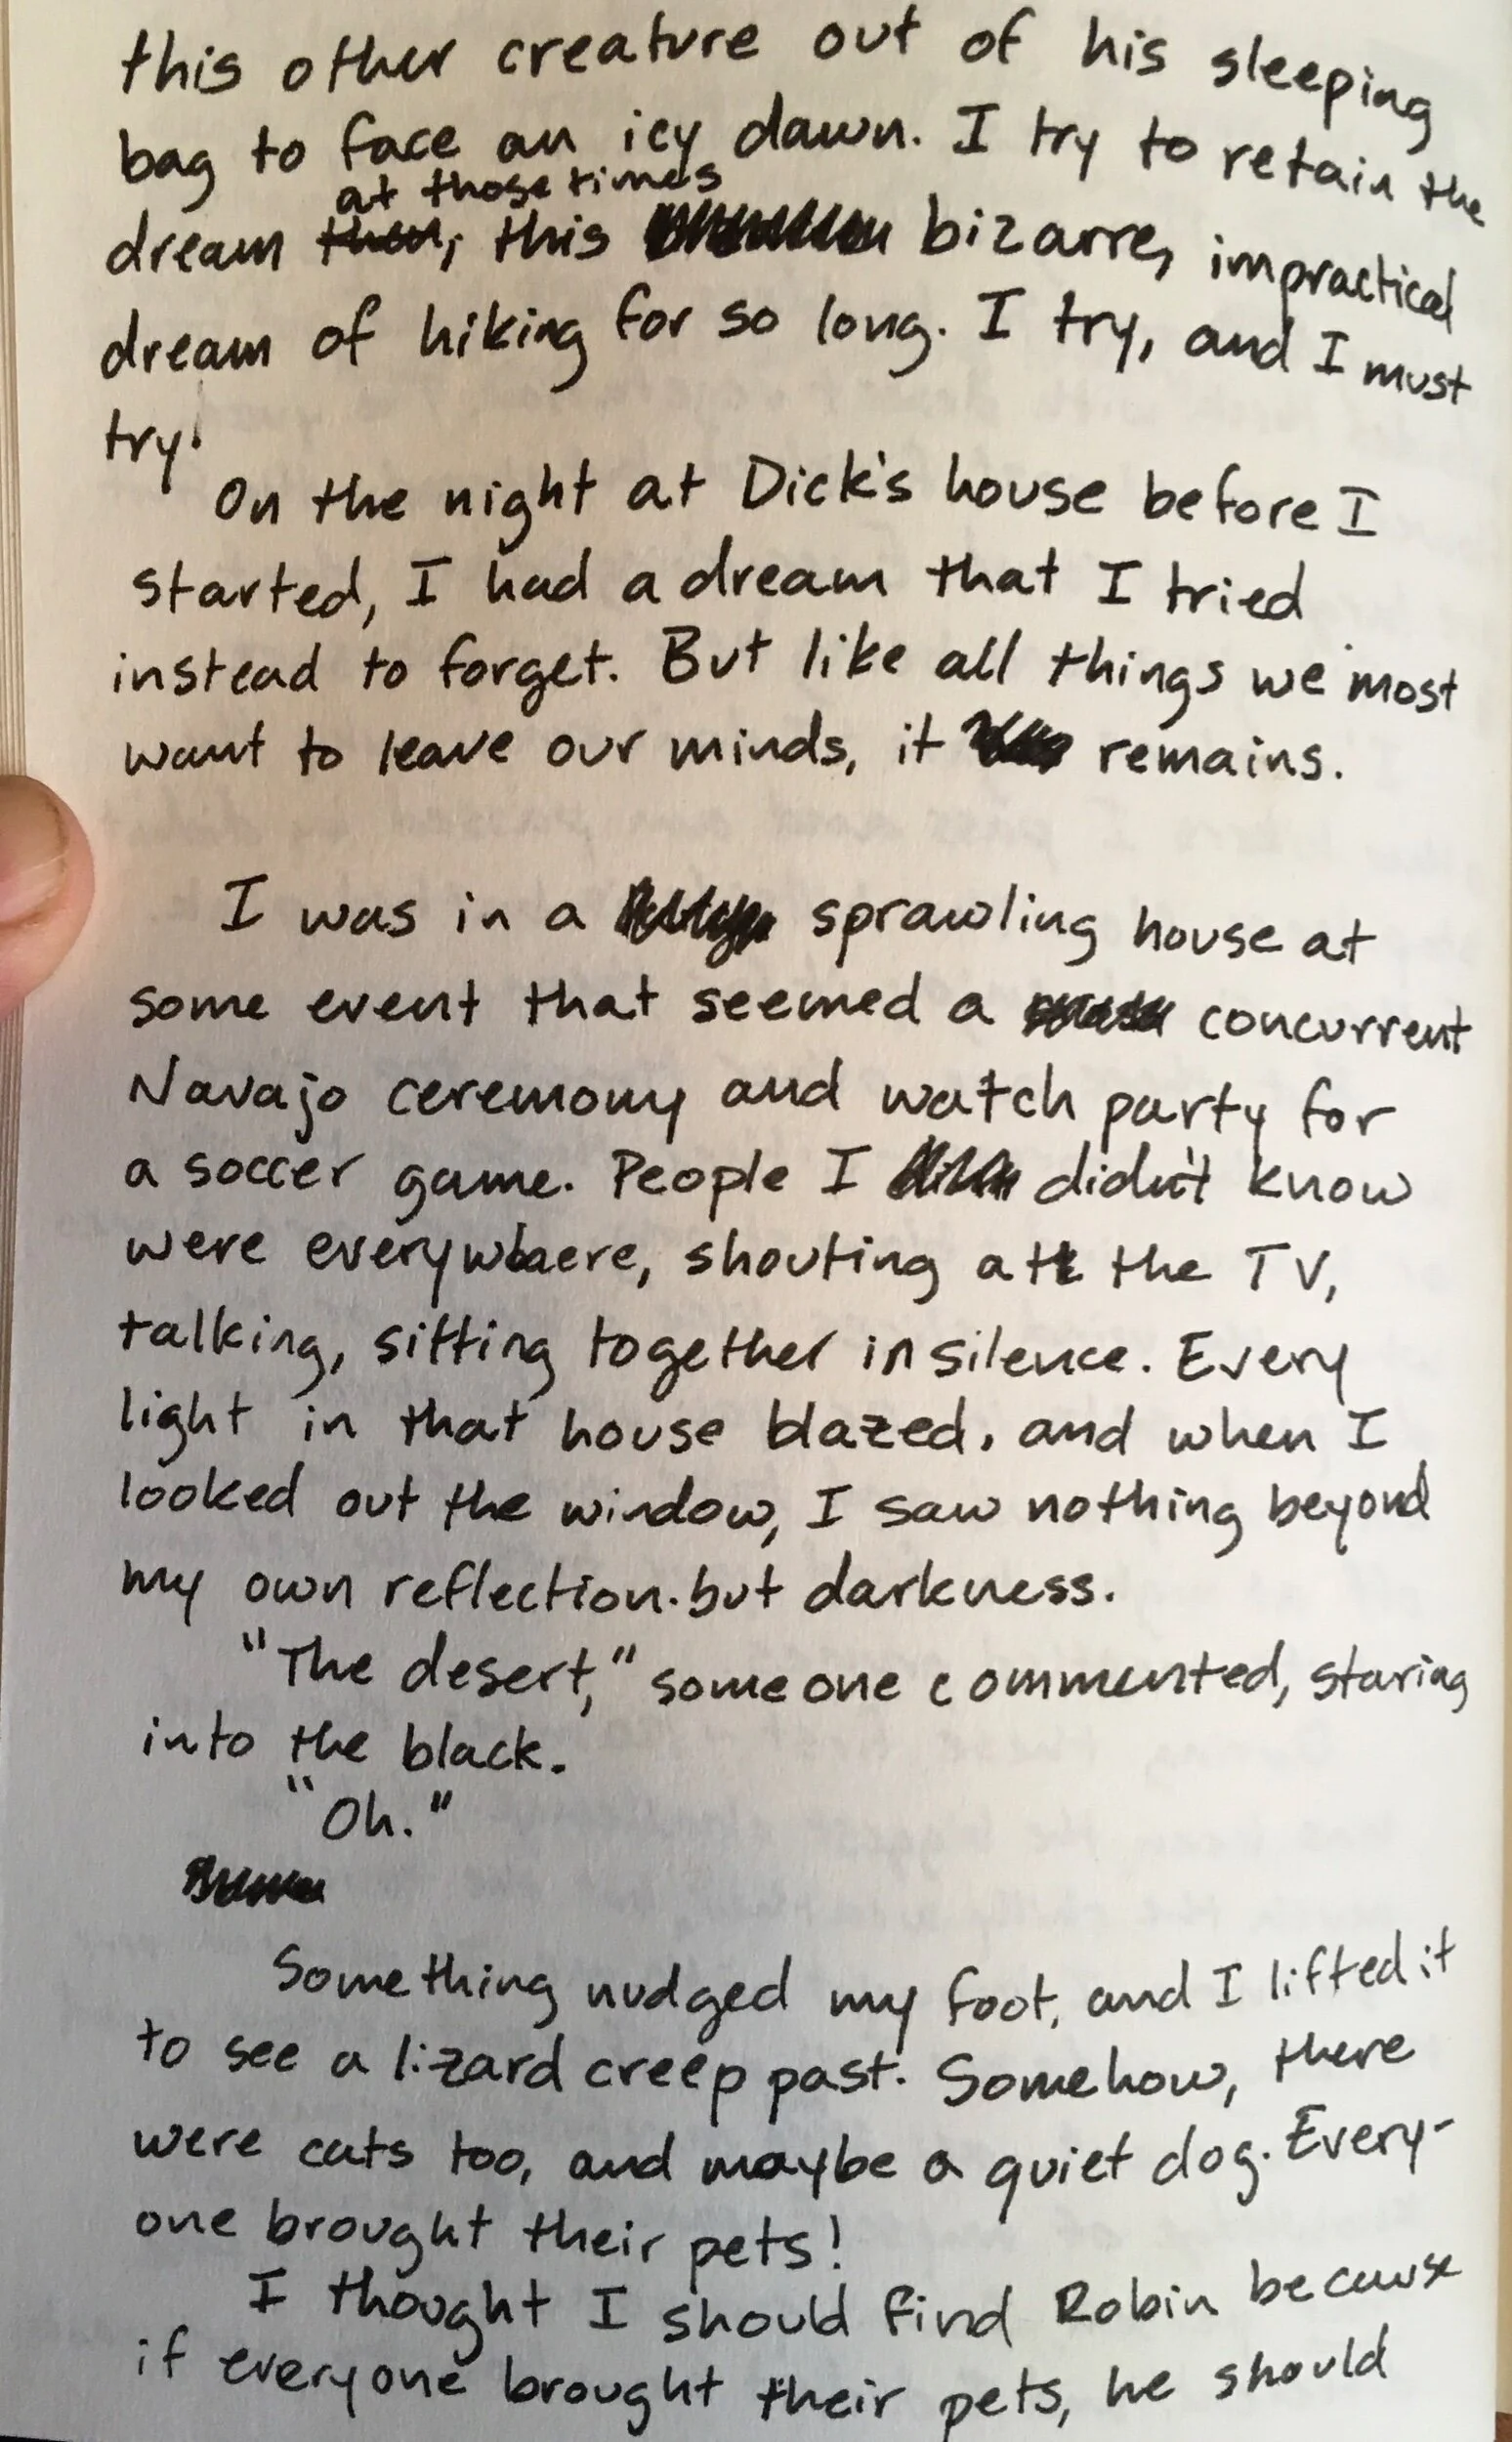 this other creature out of his sleeping
bag to face an icy dawn. I try to retain the
at those times
dream then, this bizarre, impractical
dream of hiking for so long. I try, and I must
try.
On the night at Dick's house before I
started, I had a dream that I tried
instead to forget. But like all things we most
want to leave our minds, it remains.
I was in a sprawling house at
some event that seemed a concurrent
Navajo ceremony and watch party for
a soccer game. People I didn't know
were everywhere, shouting at the TV,
talking, sitting together in silence. Every
light in that house blazed, and when I
looked out the window, I saw nothing beyond
my own reflection but darkness.
"The desert," someone commented, staring
into the black.
"Oh."
Something nudged my foot, and I lifted it
to see a lizard creep past. Somehow, there
were cats too, and maybe a quiet dog. Every-
one brought their pets!
I thought I should find Robin because
if everyone brought their pets, he should